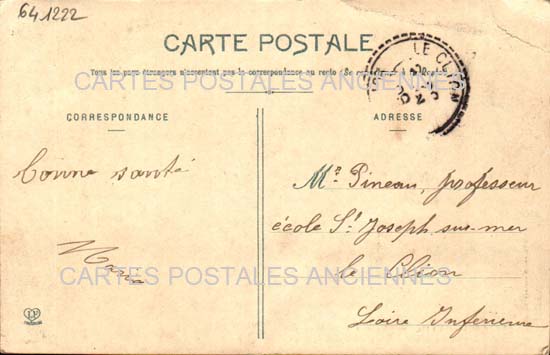 641222
CARTE POSTALE
Tous les pays étrangers n'acceptent pas la correspondance au recto (Se
CORRESPONDANCE
ADRESSE
LE CLION
Bonne santé
Mr Pineau, professeur
école St Joseph sur-mer
le Clion
Loire Inférieure
CARTES POSTALES ANCIENNES
CARTES POSTALES ANCIENNES